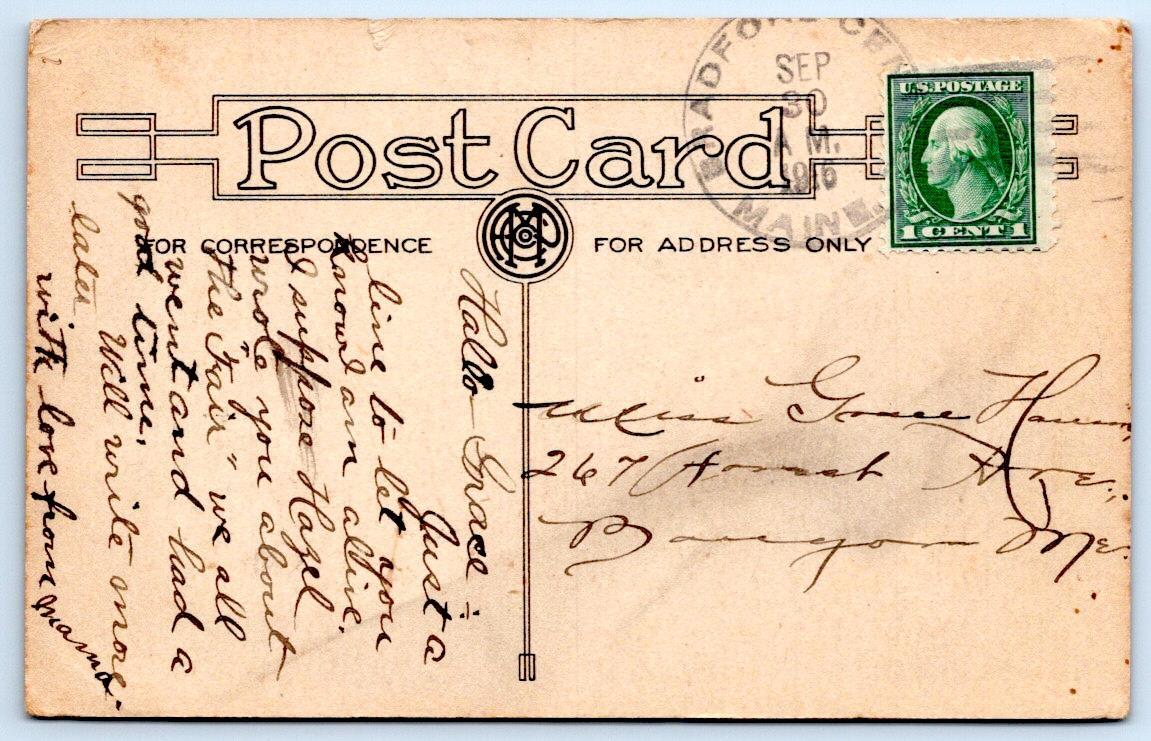 BRADFORD CEN
MAINE.
SEP
30
A M.
1916
U.S. POSTAGE
1 CENT 1
Post Card
FOR CORRESPONDENCE
FOR ADDRESS ONLY
Hallo Grace :-
Just a
line to let you
know I am alive.
I suppose Hazel
wrote you about
"the Fair" we all
went and had a
good time.
Will write more
later
with love from Mama.
Miss Grace
267 Forest Ave.
Bangor Me.